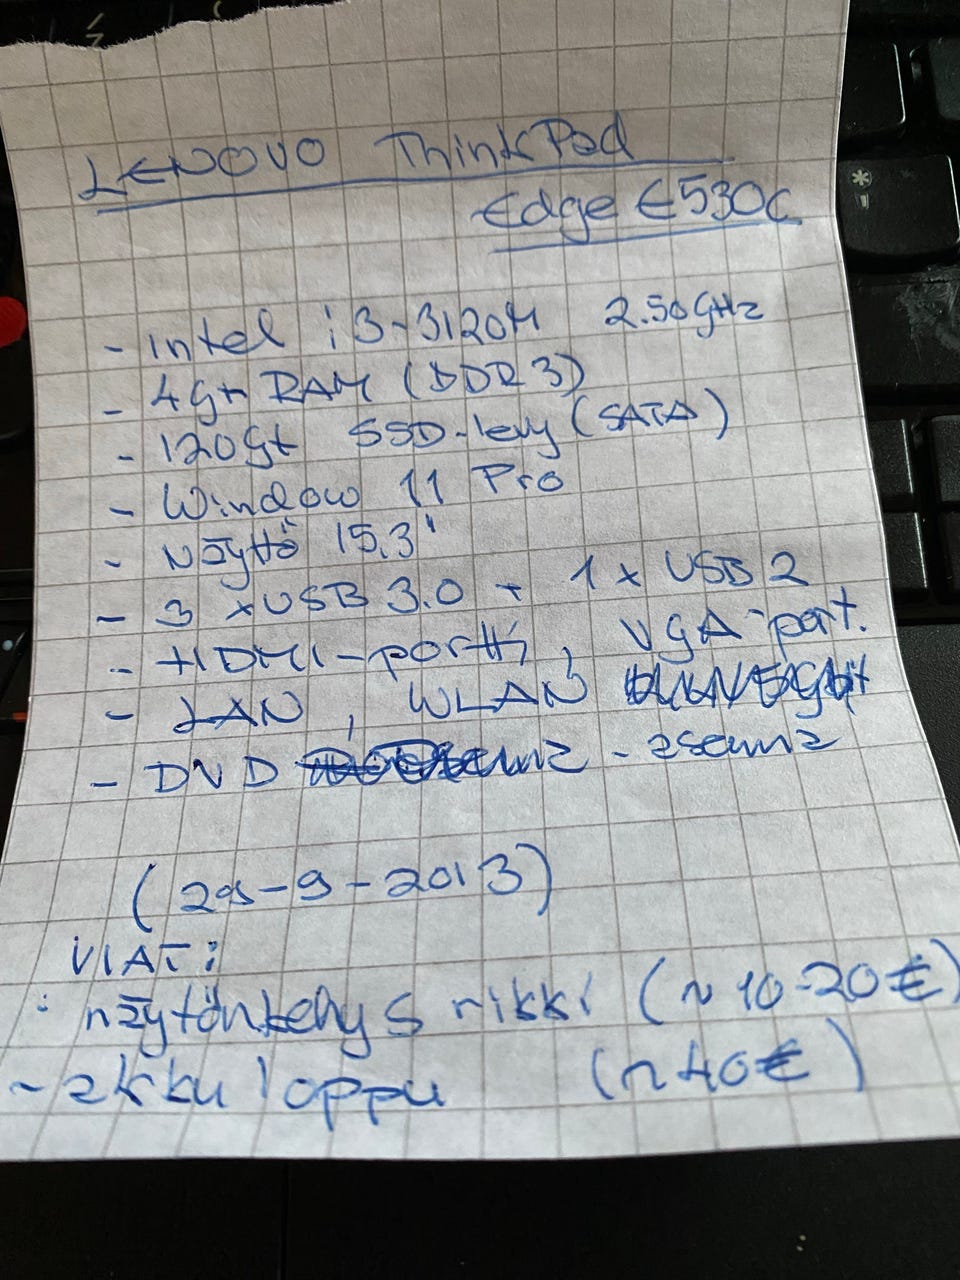 LENOVO ThinkPad
Edge E530c
- Intel i3-3120M 2.50GHz
- 4Gt RAM (DDR3)
- 120Gt SSD-levy (SATA)
- Window 11 Pro
- Näyttö 15,3"
- 3 xUSB 3.0 + 1 x USB 2
- HDMI-portti, VGA-port.
- LAN, WLAN
- DVD - asema
(29-9-2013)
VIAT:
- näytönkehys rikki (~ 10-20€)
- akku loppu (~ 40€)